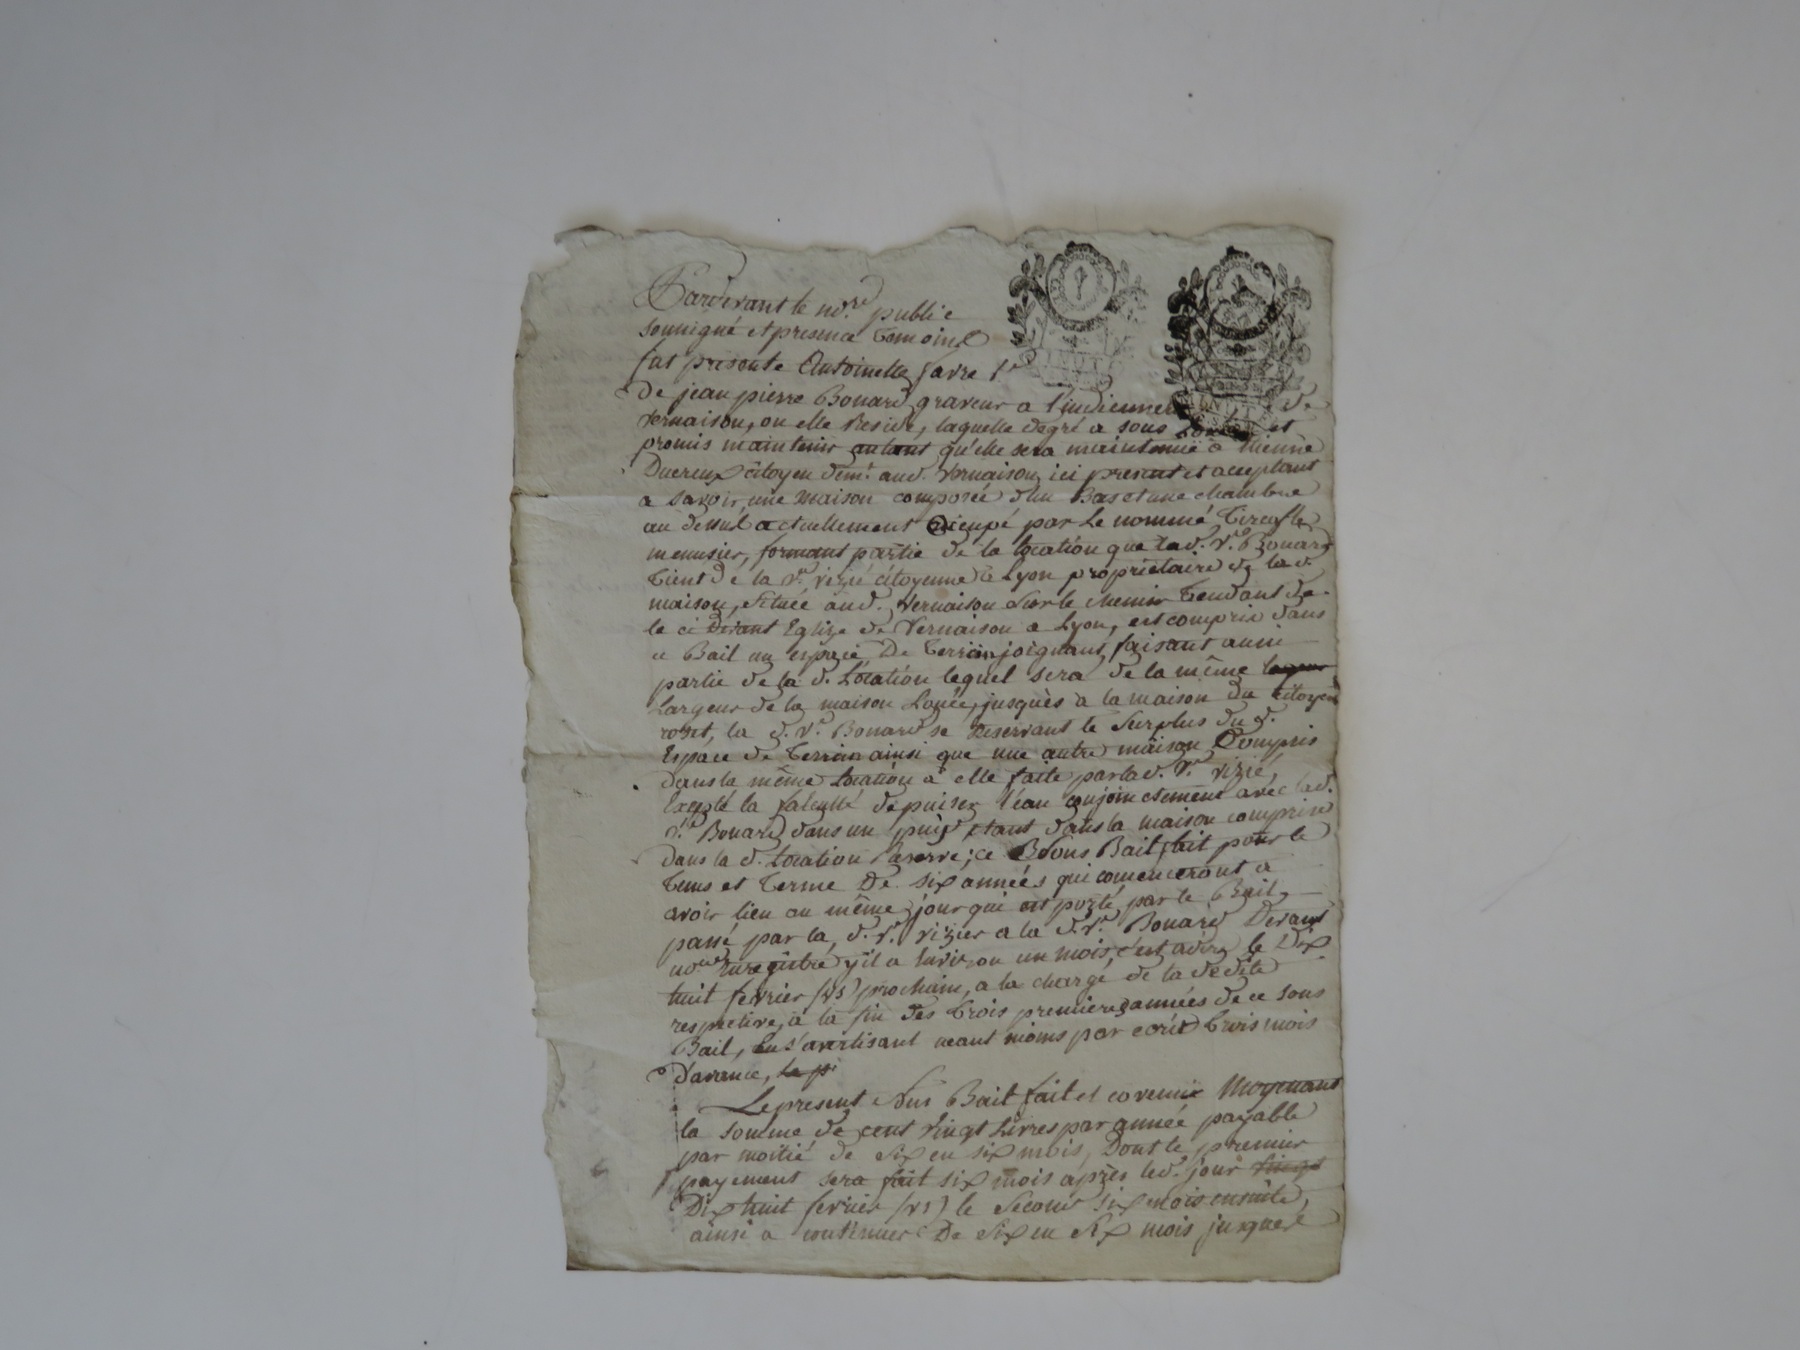 Pardevant le no.re public
soussigné et presence Temoins
fut presente Antoinette favre v.e
de jean pierre Bonard graveur a l'indienneries de
Vernaison, ou elle Reside, laquelle degré a sous et
promis maintenir autant qu'elle sera maintenue a Etienne
Ducreux citoyen dem.t aud. Vernaison ici present et acceptant
a savoir, une maison composée d'un Bas et une chambre
au dessus actuellement Occupé par Le nommé
menusier, formant partie de la location que lad. v.e Bonard
Tient de la v.e vizié citoyenne a Lyon propriétaire de la d.
maison, Située aud. Vernaison Sur le chemin Tendant de
la ci devant Eglize de Vernaison a Lyon, est compris dans
ce Bail un espace De Terrain joignant, faisant aussi
partie de la d. Location lequel sera de la même largeur
Largeur de la maison Louée, jusques a la maison du citoyen
roset, la d. v.e Bonard se Reservant le Surplus du d.
Espace de Terrain ainsi que une autre maison Compris
dans la même Location a elle faite par la d. v.e vizié,
Excepté la faculté de puiser l'eau conjointement avec lad.
v.e Bonard dans un puis étant dans la maison comprise
dans la d. Location Reserve; ce Sous Bail fait pour le
tems et Terme De six années qui comenceront a
avoir lieu au même jour qui est porté par le Bail
passé par la d. v.e vizier a la d. v.e Bonard Devant
nous enregistré y il a Environ un mois, c'est a dire le Dix
huit fevrier (vs) prochain, a la charge de la dedite
respective, a la fin des Trois premieres années de ce sous
Bail, En s'avertisant neant moins par ecrit Trois mois
D'avance, Le p
Le present Sous Bail fait et convenu Moyenant
la somme de cent vingt Livres par année payable
par moitié de Six en six mois, Dont le premier
payement sera fait six mois après led. jour vingt
Dix huit fevrier (vs) le Second six mois ensuite,
ainsi a continuer De Six en Six mois jusques